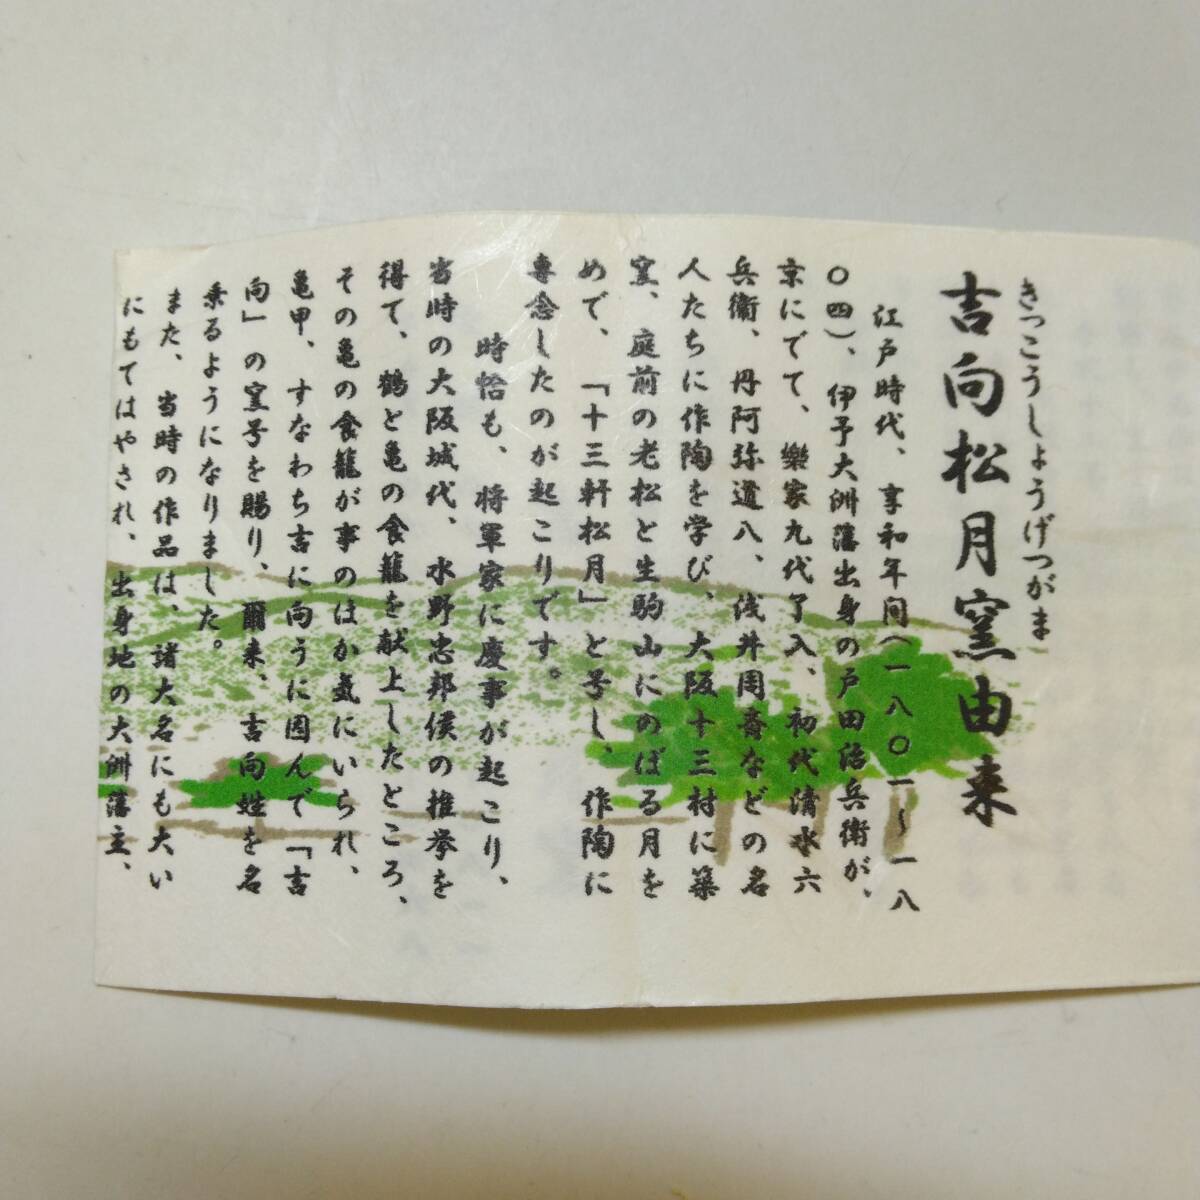 きっこうしょうげつがま
吉向松月窯由来
江戸時代、享和年间(一八〇一~一八
〇四)、伊予大洲藩出身の戸田治兵衛が、
京にでて、樂家九代了入、初代清水六
兵衛、丹阿弥道八、浅井周斎などの名
人たちに作陶を学び、大阪十三村に築
窯、庭前の老松と生駒山にのぼる月を
めで、「十三軒松月」と号し、作陶に
専念したのが起こりです。
時恰も、将軍家に慶事が起こり、
当時の大阪城代、水野忠邦侯の推挙を
得て、鶴と亀の食籠を献上したところ、
その亀の食籠が事のほか気にいられ、
亀甲、すなわち吉に向うに因んで「吉
向」の窯号を賜り、爾来、吉向姓を名
乗るようになりました。
また、当時の作品は、諸大名にも大い
にもてはやされ、出身地の大洲藩主、